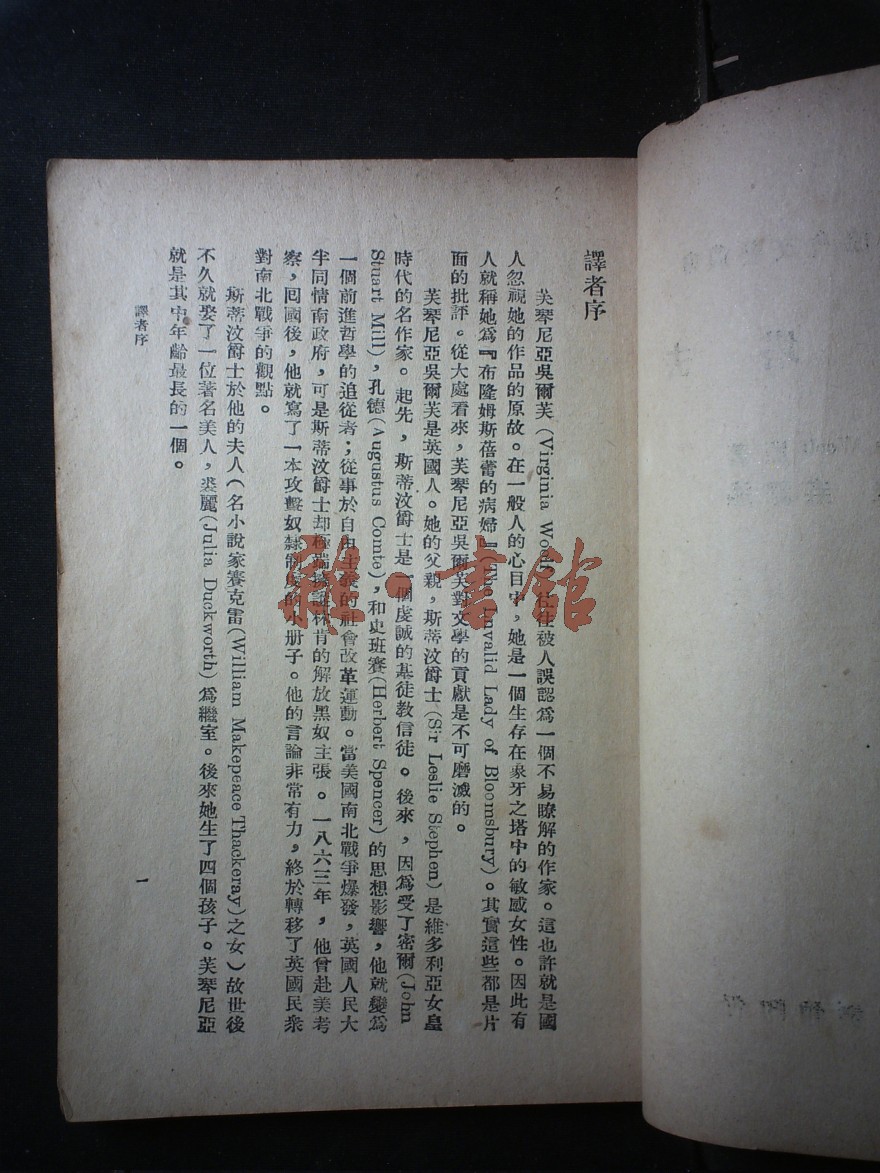 譯者序
芙琴尼亞吳爾芙(Virginia Woolf)往往被人誤認爲一個不易瞭解的作家。這也許就是國
人忽視她的作品的原故。在一般人的心目中，她是一個生存在象牙之塔中的敏感女性。因此有
人就稱她爲『布隆姆斯蓓蕾的病婦』(The Invalid Lady of Bloomsbury)。其實這些都是片
面的批評。從大處看來，芙琴尼亞吳爾芙對文學的貢獻是不可磨滅的。
芙琴尼亞吳爾芙是英國人。她的父親，斯蒂汶爵士(Sir Leslie Stephen)是維多利亞女皇
時代的名作家。起先，斯蒂汶爵士是一個虔誠的基徒教信徒。後來，因爲受了密爾(John
Stuart Mill)，孔德(Augustus Comte)，和史班賽(Herbert Spencer)的思想影響，他就變爲
一個前進哲學的追從者；從事於自由主義的社會改革運動。當美國南北戰爭爆發，英國人民大
半同情南政府，可是斯蒂汶爵士却極端擁護林肯的解放黑奴主張。一八六三年，他曾赴美考
察，囘國後，他就寫了一本攻擊奴隸制度的小册子。他的言論非常有力，終於轉移了英國民衆
對南北戰爭的觀點。
斯蒂汶爵士於他的夫人(名小說家賽克雷(William Makepeace Thackeray)之女)故世後
不久就娶了一位著名美人，裘麗(Julia Duckworth)爲繼室。後來她生了四個孩子。芙琴尼亞
就是其中年齡最長的一個。
譯者序
一
雅·書館